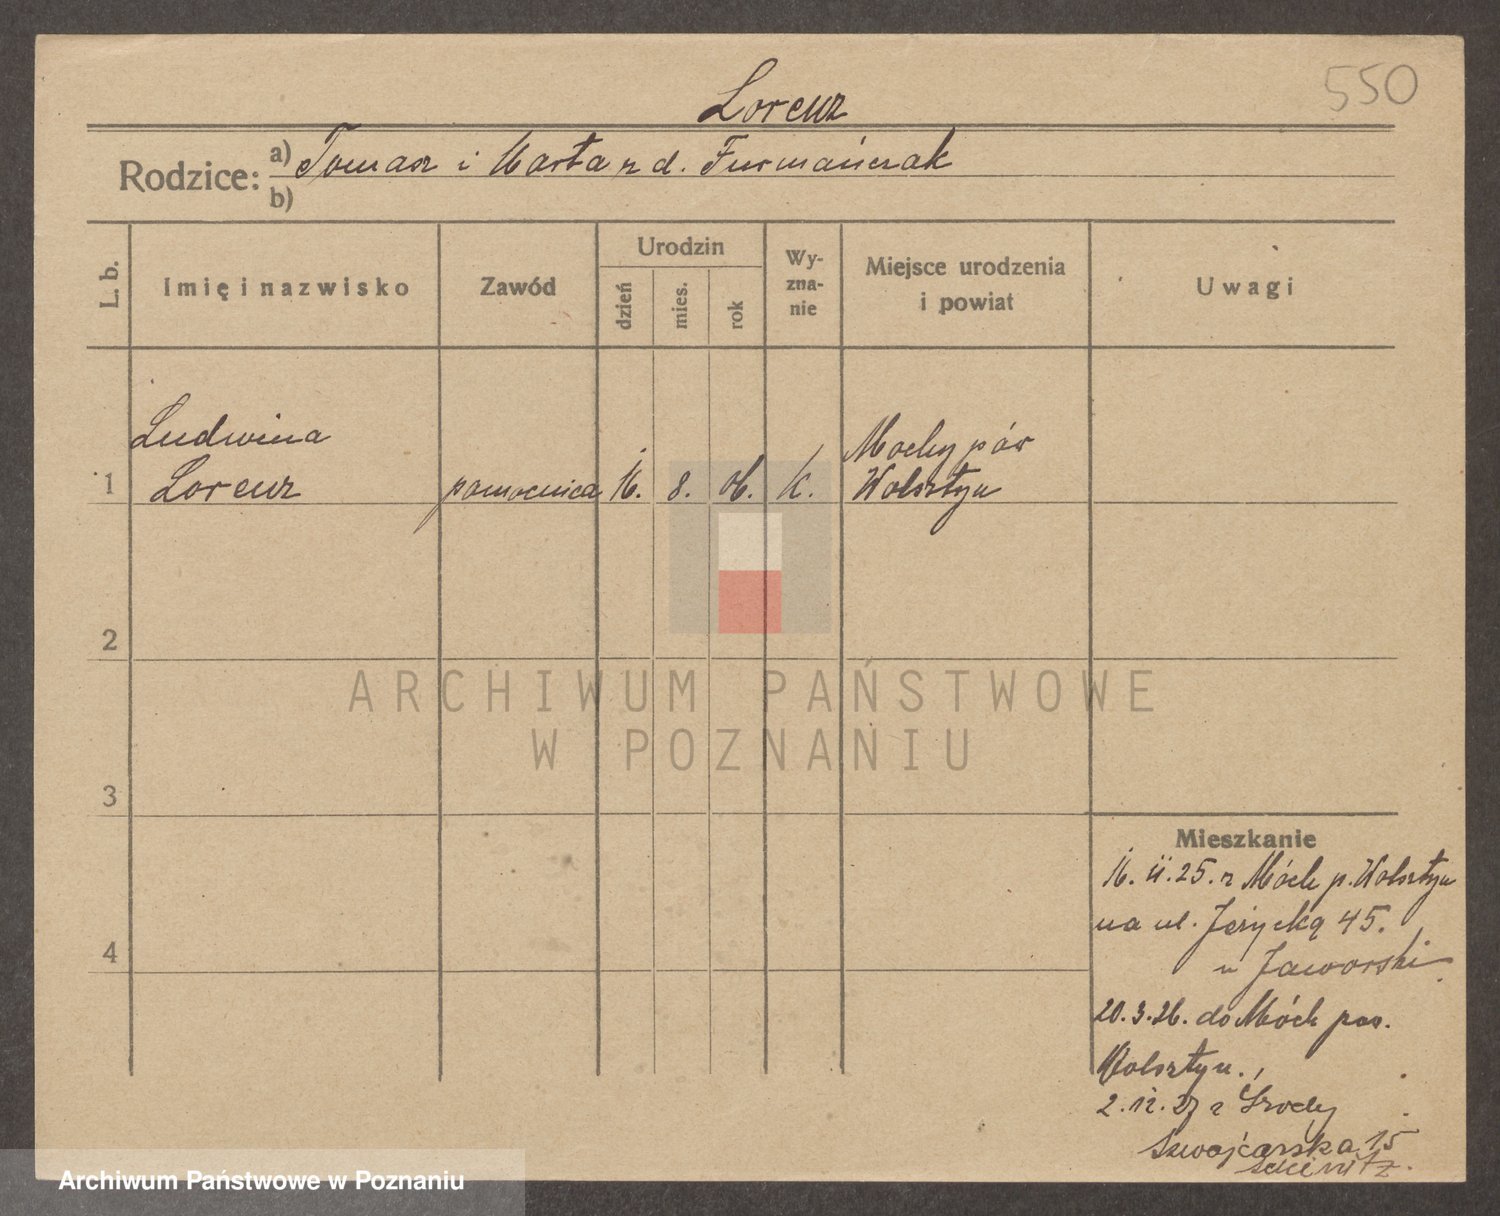 550
Lorenz
Rodzice:
a) Tomasz i Marta z d. Furmańczak
b)
L. b.
Imię i nazwisko
Zawód
Urodzin
dzień
mies.
rok
Wy-
zna-
nie
Miejsce urodzenia
i powiat
Uwagi
Ludwina
1 Lorenz
pomocnica
16.
8.
06.
k.
Mochy pow
Wolsztyn
2
3
4
ARCHIWUM PAŃSTWOWE
W POZNANIU
Mieszkanie
16. 11. 25. z Móch p. Wolsztyn
na ul. Jeżycką 45.
u Jaworski
20. 3. 26. do Móch pow.
Wolsztyn.
2. 12. 27 z Środy
Szwajcarska 15
Archiwum Państwowe w Poznaniu